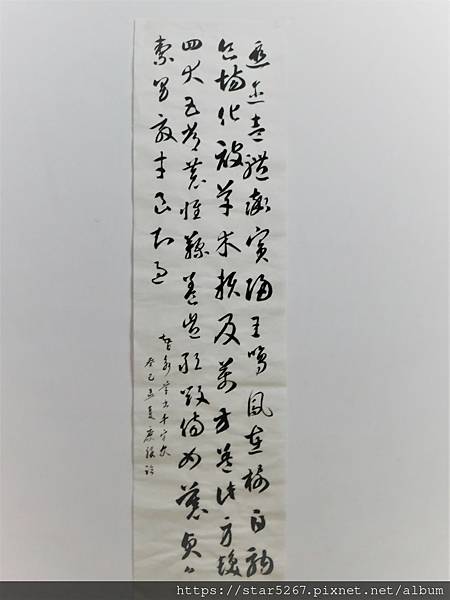 遐迩壹體率賓歸王鳴鳳在樹白駒
食場化被草木賴及萬方蓋此身髮
四大五常恭惟鞠養豈敢毀傷女慕貞
絜男效才良知過
智永草書千字文
癸巳孟夏
https://star5267.pixnet.net/album